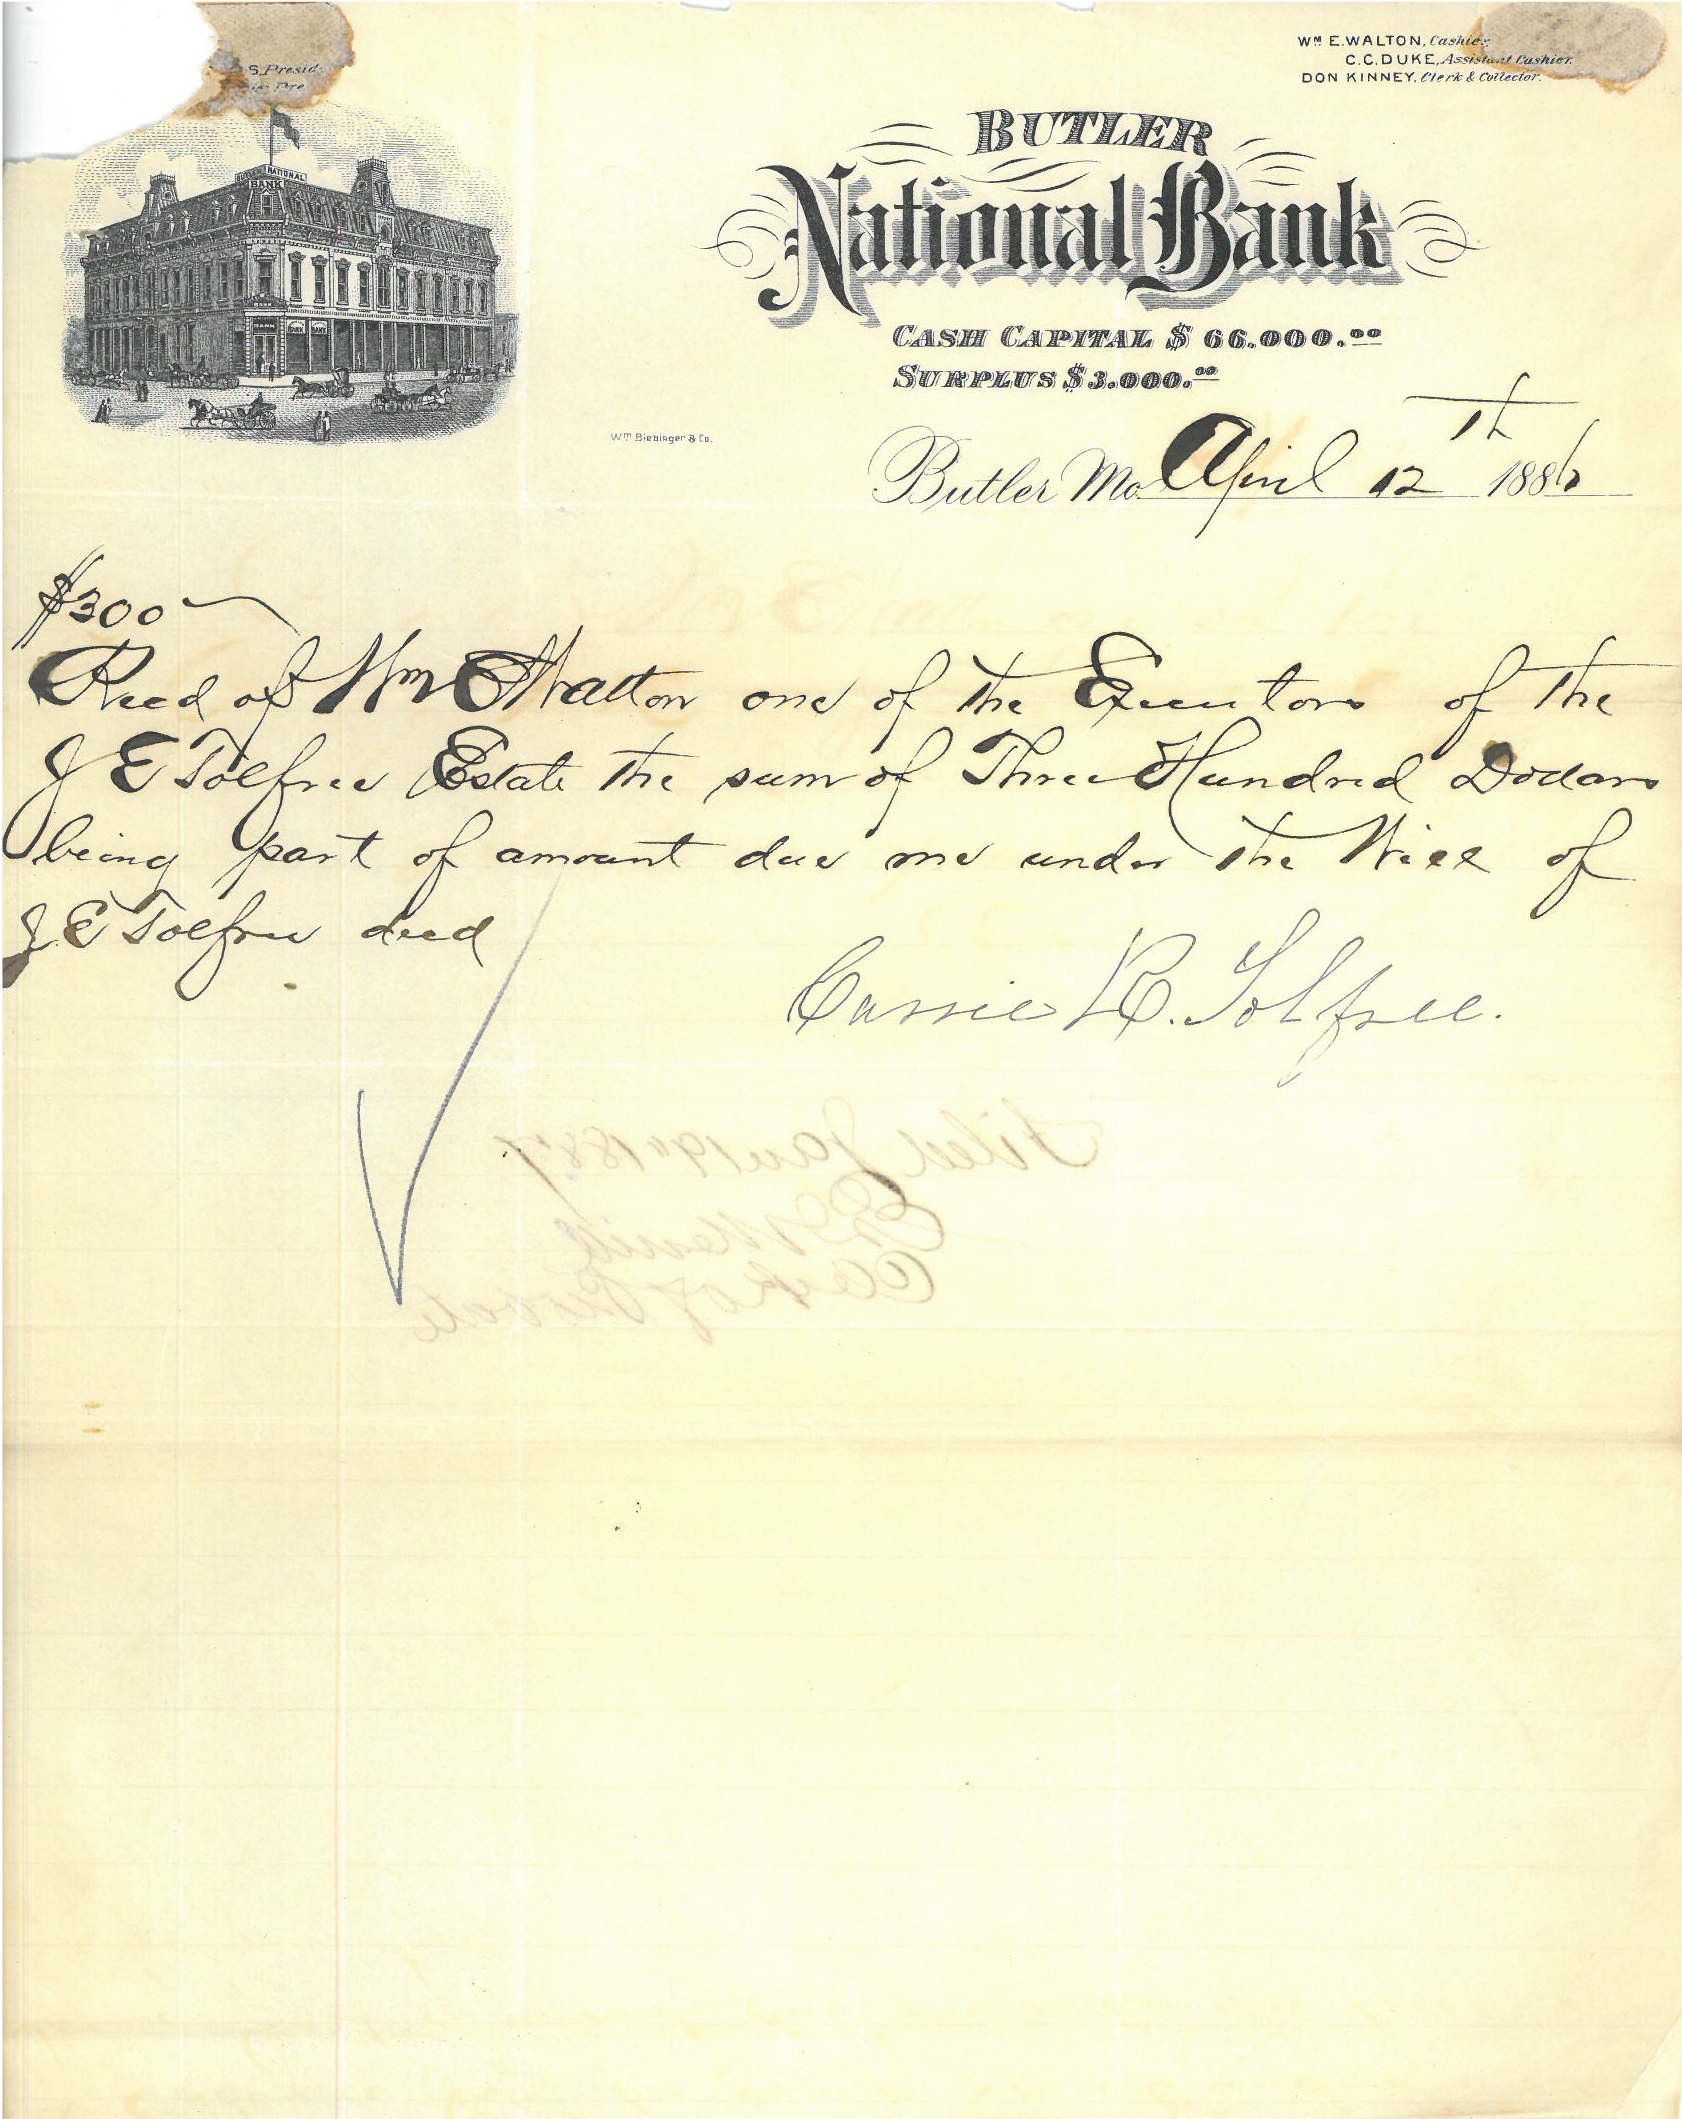 S. Presid
WM E. WALTON, Cashier.
C. C. DUKE, Assistant Cashier.
DON KINNEY, Clerk & Collector.
BUTLER NATIONAL
BANK
BANK
BUTLER
National Bank
CASH CAPITAL $ 66.000.00
SURPLUS $ 3.000.00
Wm Biebinger & Co.
Butler Mo April 12th 1886
$300
Recd of Wm E Walton one of the Executors of the
J E Tolfree Estate the sum of Three Hundred Dollars
being part of amount due me under the Will of
J E Tolfree decd
Carrie R. Tolfree.
Filed Jan 19" 1887
Clerk of Probate